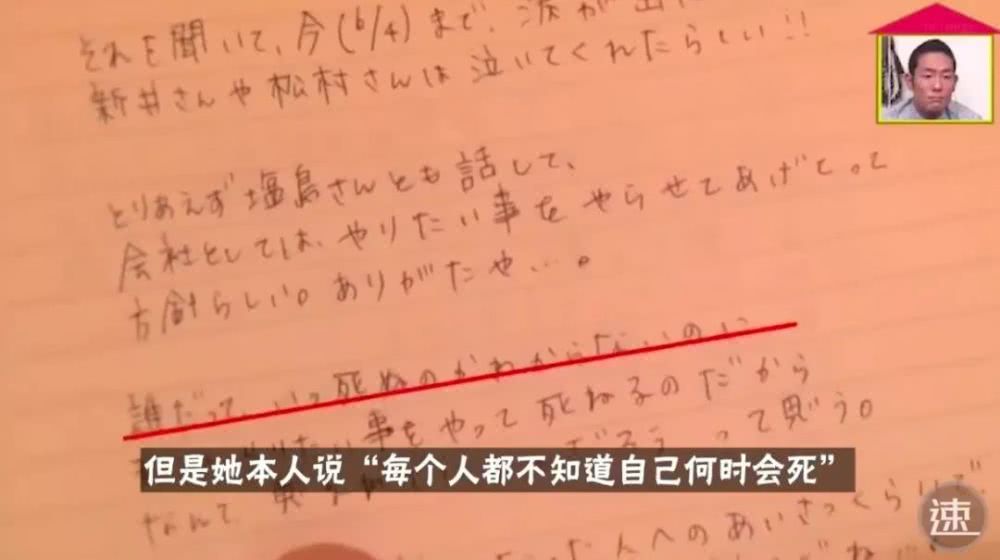 それを聞いて、今(6/4)まで、涙が
新井さんや松村さんは泣いてくれたらしい!!
とりあえず塩島さんとも話して、
会社としては、やりたい事をやらせてあげてって
方針らしい。ありがたや…。
誰だって、いつ死ぬのかわからないのに
やりたい事をやって死ねるのだから
って思う。
但是她本人说“每个人都不知道自己何时会死”
なんて、
人へのあいさつくらいで、
速